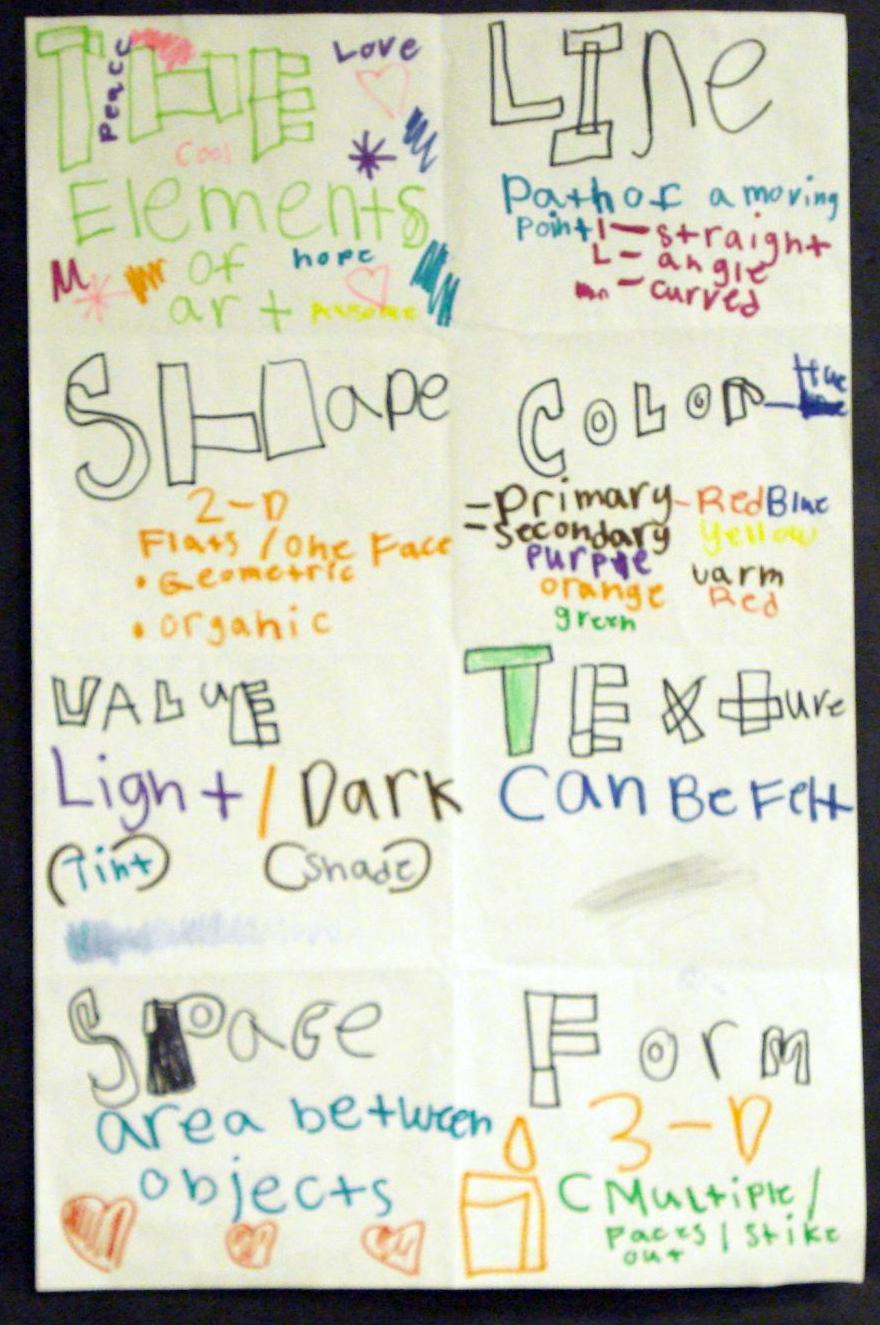 THE
Peace
Love
Cool
Elements
of
hope
art
Awsome
LIne
Path of a moving
Point I — straight
L - angle
- curved
SHape
2-D
Flats / One Face
• Geometric
• organic
COLOr — Hue
- Primary - Red Blue
- Secondary Yellow
Purple
orange
green
warm
Red
VALuE
Light / Dark
(Tint) (Shade)
TEXture
Can Be Felt
SPace
area between
objects
Form
3-D
(Multiple /
Faces / Stike
out